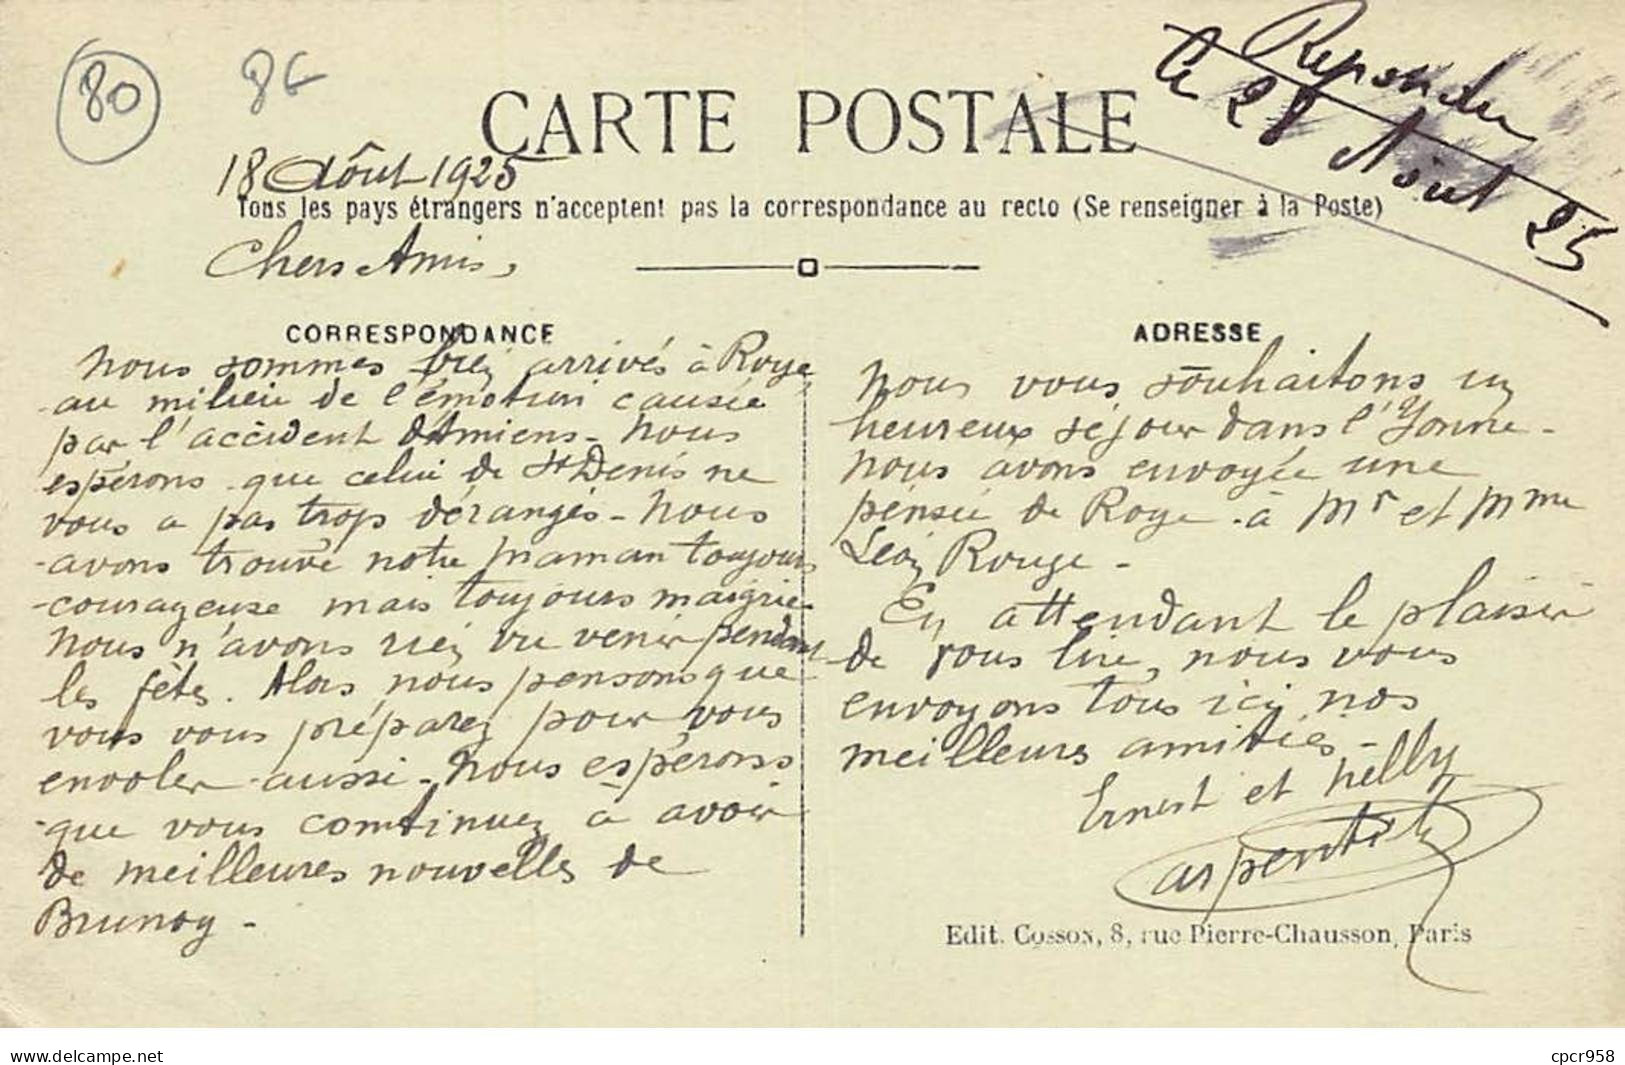 80
86
Repondu
le 28 Aout 25
CARTE POSTALE
18 Août 1925
Tous les pays étrangers n'acceptent pas la correspondance au recto (Se renseigner à la Poste)
Chers Amis,
CORRESPONDANCE
Nous sommes bien arrivés à Roye
au milieu de l'émotion causée
par l'accident d'Amiens - Nous
espérons que celui de St Denis ne
vous a pas trop dérangés - Nous
avons trouvé notre maman toujours
courageuse mais toujours maigrie
Nous n'avons rien vu venir pendant
les fêtes. Alors nous pensons que
vous vous préparez pour vous
envoler aussi - Nous espérons
que vous comtinuez à avoir
de meilleures nouvelles de
Brunoy -
ADRESSE
Nous vous souhaitons un
heureux séjour dans l'Yonne -
Nous avons envoyée une
pensée de Roye à Mr et Mme
Léon Rouge -
En attendant le plaisir
de vous lire, nous vous
envoyons tous ici nos
meilleurs amitiés -
Ernest et Nelly
Carpentier
Edit. Cosson, 8, rue Pierre-Chausson, Paris
cpcr958